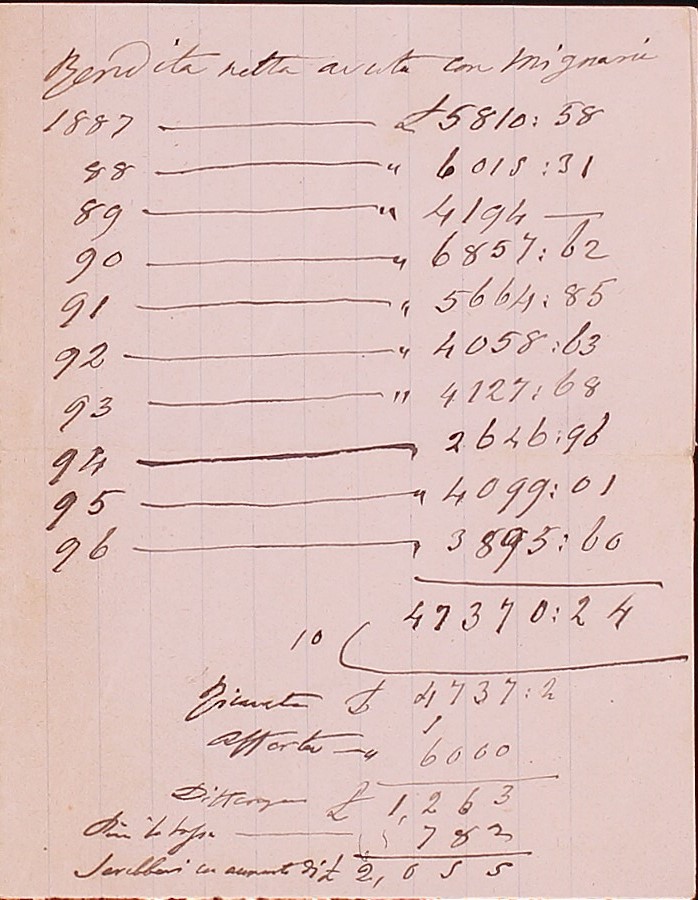 Rendita netta avuta con Mignani
1887 — £ 5810:58
88 — " 6015:31
89 — " 4194 —
90 — " 6857:62
91 — " 5664:85
92 — " 4058:63
93 — " 4127:68
94 — " 2646:96
95 — " 4099:01
96 — " 3895:60
47370:24
10
Ricavata £ 4737:2
Offerta — " 6000
Differenza £ 1,263
Più le tasse — 792
Sarebbevi un aumento di £ 2,055